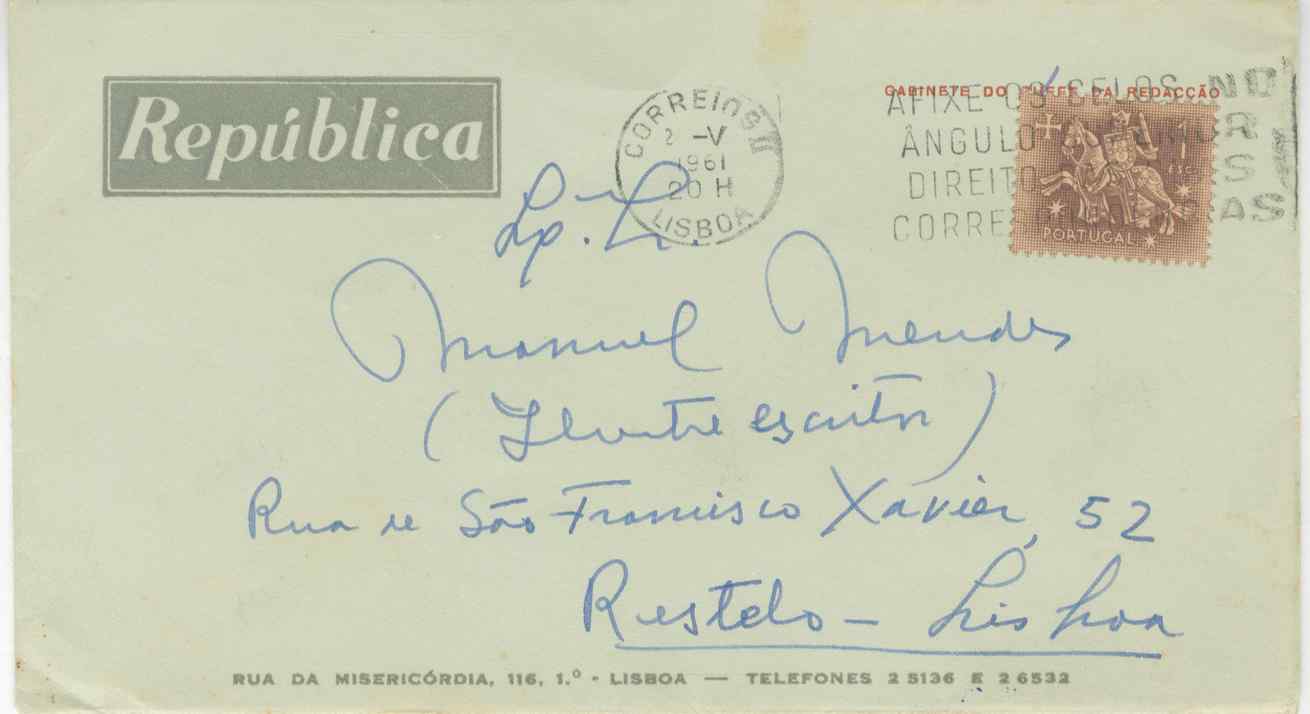 República
GABINETE DO CHEFE DA REDACÇÃO
CORREIOS
2 -V
1961
20 H
LISBOA
AFIXE OS SELOS NO
ÂNGULO
DIREITO
PORTUGAL
Manuel Mendes
(Ilustre escritor)
Rua de São Francisco Xavier, 52
Restelo - Lisboa
RUA DA MISERICÓRDIA, 116, 1.º - LISBOA — TELEFONES 2 5136 E 2 6532